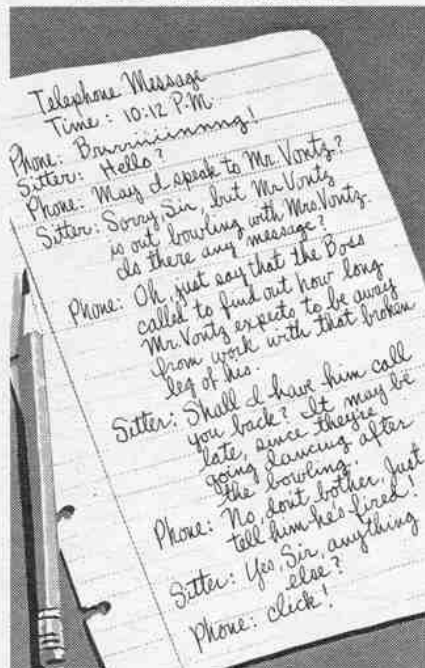 Telephone Message
Time: 10:12 P.M.
Phone: Brurriiiinnnng!
Sitter: Hello?
Phone: May I speak to Mr. Vontz?
Sitter: Sorry, Sir, but Mr. Vontz
is out bowling with Mrs. Vontz.
Is there any message?
Phone: Oh, just say that the Boss
called to find out how long
Mr. Vontz expects to be away
from work with that broken
leg of his.
Sitter: Shall I have him call
you back? It may be
late, since they're
going dancing after
the bowling.
Phone: No, don't bother, Just
tell him he's fired!
Sitter: Yes, Sir, anything
else?
Phone: click!